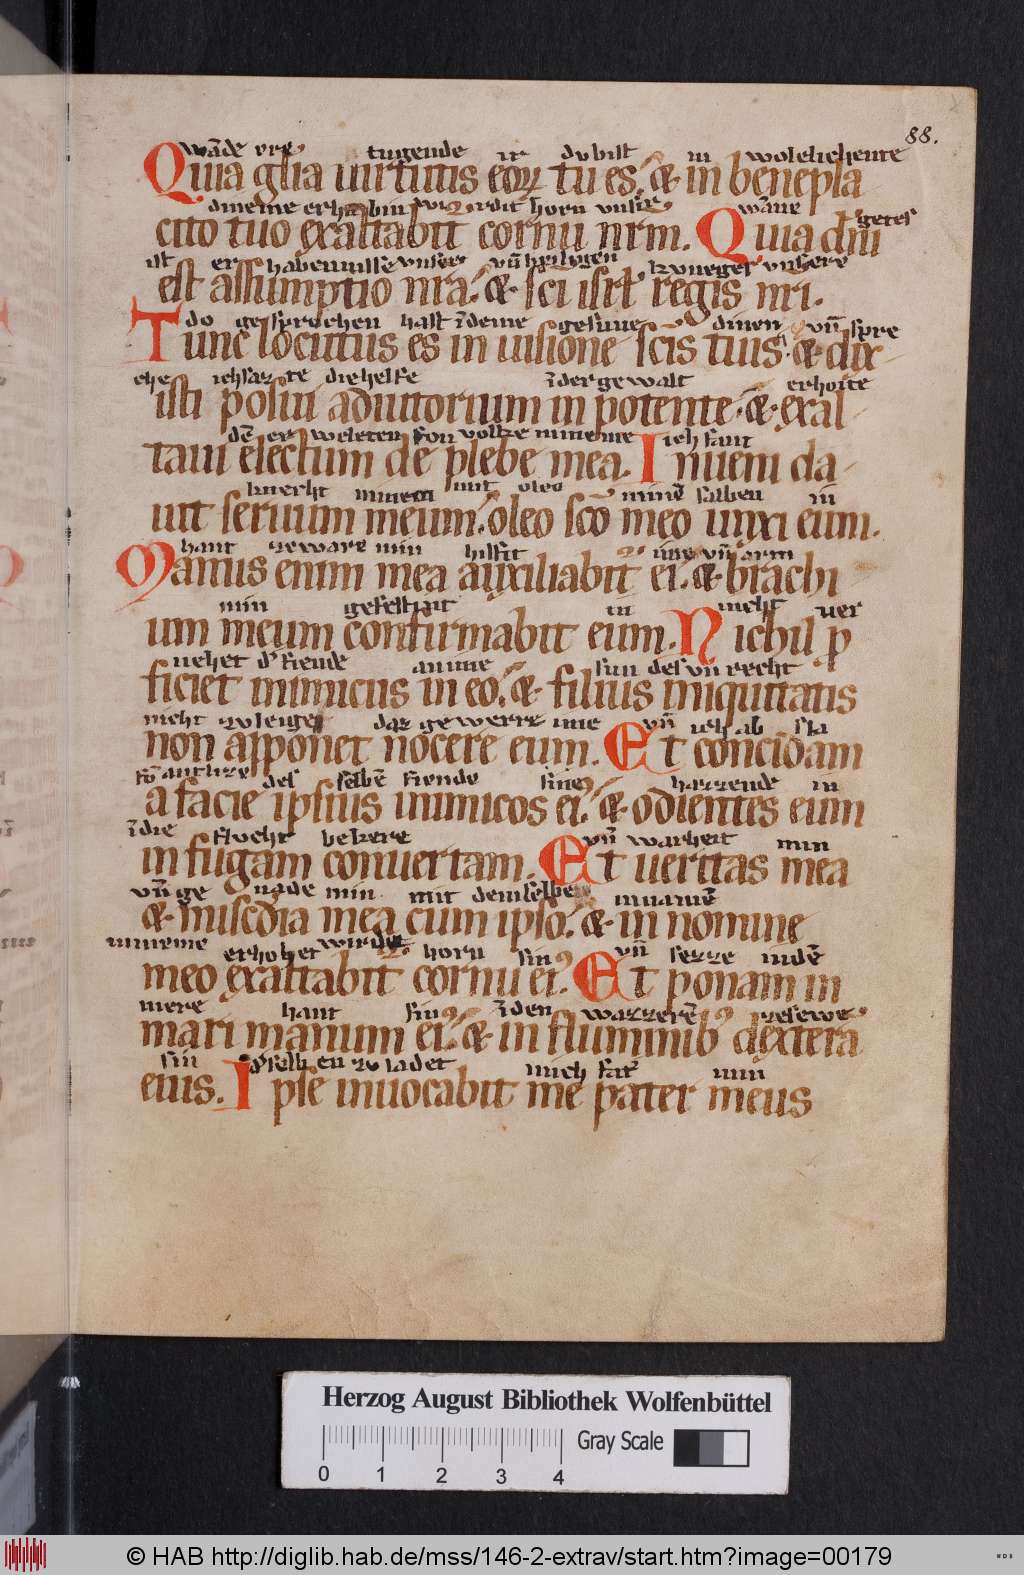 88.
wāde ere tugende ir du bist in wolelichente
Quia glīa uirtutis eoꝝ tu es. & in benepla
dineme erhabin wirdit horn unsir wane
cito tuo exaltabit cornu nrm. Quia dni
ist er habennisse unser vn heiligen kuneges unsere
est assumptio nra. & sci isrl regis nri.
do gesprochen hast ideme gesiune dinen vn spre
Tunc locutus es in uisione scis tuis. & dix
che ich sazte die helfe der gewalt erhoite
isti posui adiutorium in potente. & exal
erweleten fon volke mineme ich fant
taui electum de plebe mea. Inueni da
knecht minen mit oleo mime salben in
uit seruum meum. oleo sco meo unxi eum.
hant zeware min hilfit vn arm
Manus enim mea auxiliabit ei. & brachi
min gefestinit in nieht ver
um meum confirmabit eum. Nichil p
uehet d fiende an ime sun des unrecht
ficiet inimicus in eo. & filius iniquitatis
nieht zolenget daz gewerre ime vn ich ab sla
non apponet nocere eum. Et concidam
antlize des selbē fiende sine hazzende in
a facie ipsius inimicos ei. & odientes eum
īdie flucht bekere vn warheit min
in fugam conuertam. Et ueritas mea
vn ge nade min mit demselben
& misc̄dia mea cum ipso. & in nomine
mineme erhohet wirdet horn sin vn sezze indē
meo exaltabit cornu ei. Et ponam in
mere hant sin īden wazzerē zesewe
mari manum ei. & in fluminib dextera
sin d selb en zuladet mich fat min
eius. Ipse inuocabit me pater meus
Herzog August Bibliothek Wolfenbüttel
Gray Scale
0 1 2 3 4
© HAB http://diglib.hab.de/mss/146-2-extrav/start.htm?image=00179